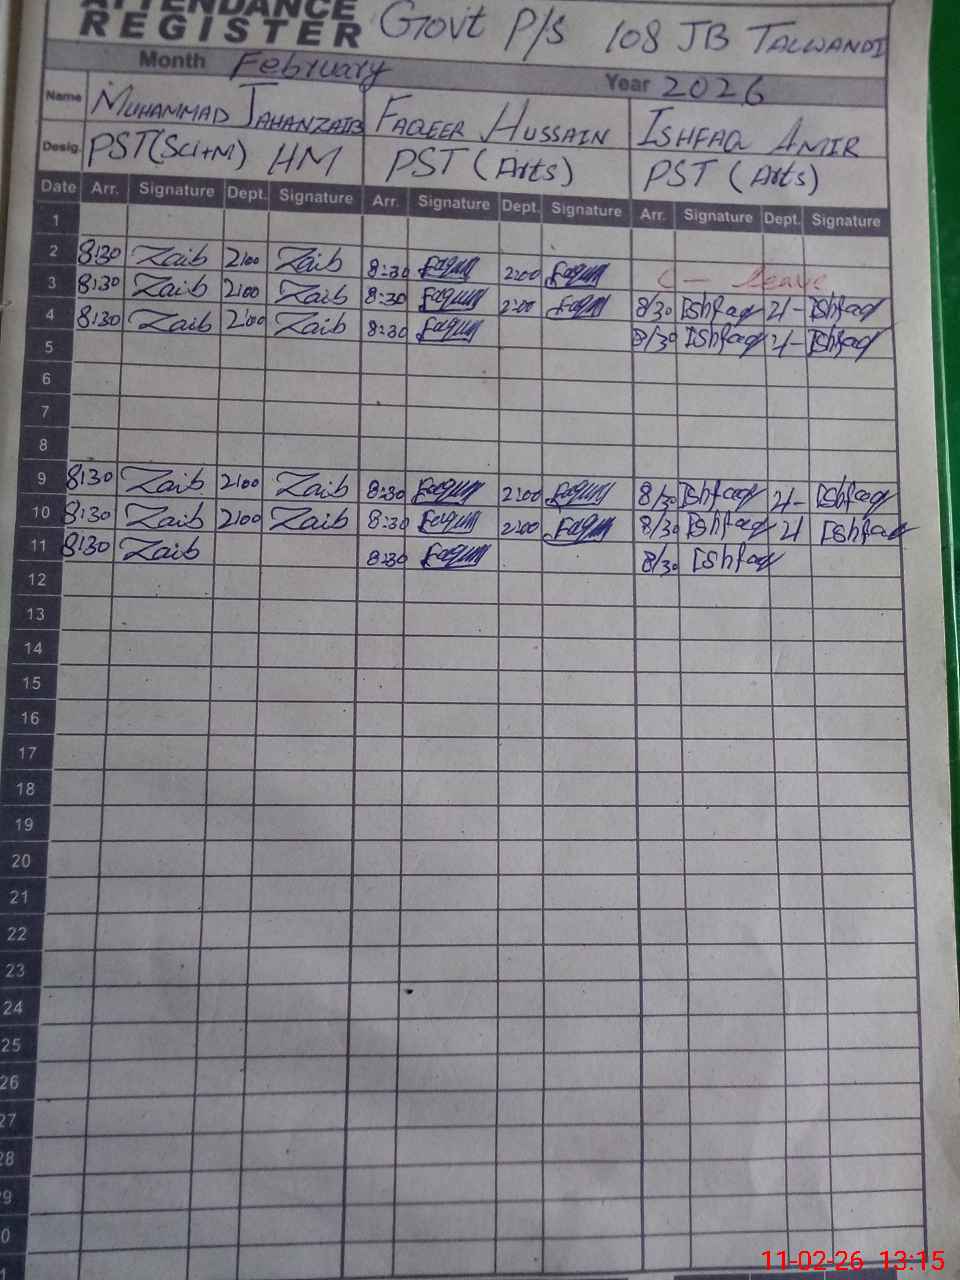 ATTENDANCE
REGISTER Govt P/S 108 JB TALWANDI
Month February Year 2026
Name MUHAMMAD JAHANZAIB FAQEER HUSSAIN ISHFAQ AMIR
Desig. PST(Sci+M) HM PST (Arts) PST (Arts)
Date Arr. Signature Dept. Signature Arr. Signature Dept. Signature Arr. Signature Dept. Signature
1
2 8:30 Zaib 2:00 Zaib 8:30 Faqeer 2:00 Faqeer C - leave
3 8:30 Zaib 2:00 Zaib 8:30 Faqeer 2:00 Faqeer 8/30 Ishfaq 2/- Ishfaq
4 8:30 Zaib 2:00 Zaib 8:30 Faqeer 8/30 Ishfaq 2/- Ishfaq
5
6
7
8
9 8:30 Zaib 2:00 Zaib 8:30 Faqeer 2:00 Faqeer 8/30 Ishfaq 2/- Ishfaq
10 8:30 Zaib 2:00 Zaib 8:30 Faqeer 2:00 Faqeer 8/30 Ishfaq 2/ Ishfaq
11 8:30 Zaib 8:30 Faqeer 8/30 Ishfaq
12
13
14
15
16
17
18
19
20
21
22
23
24
25
26
27
28
9
0
11-02-26 13:15